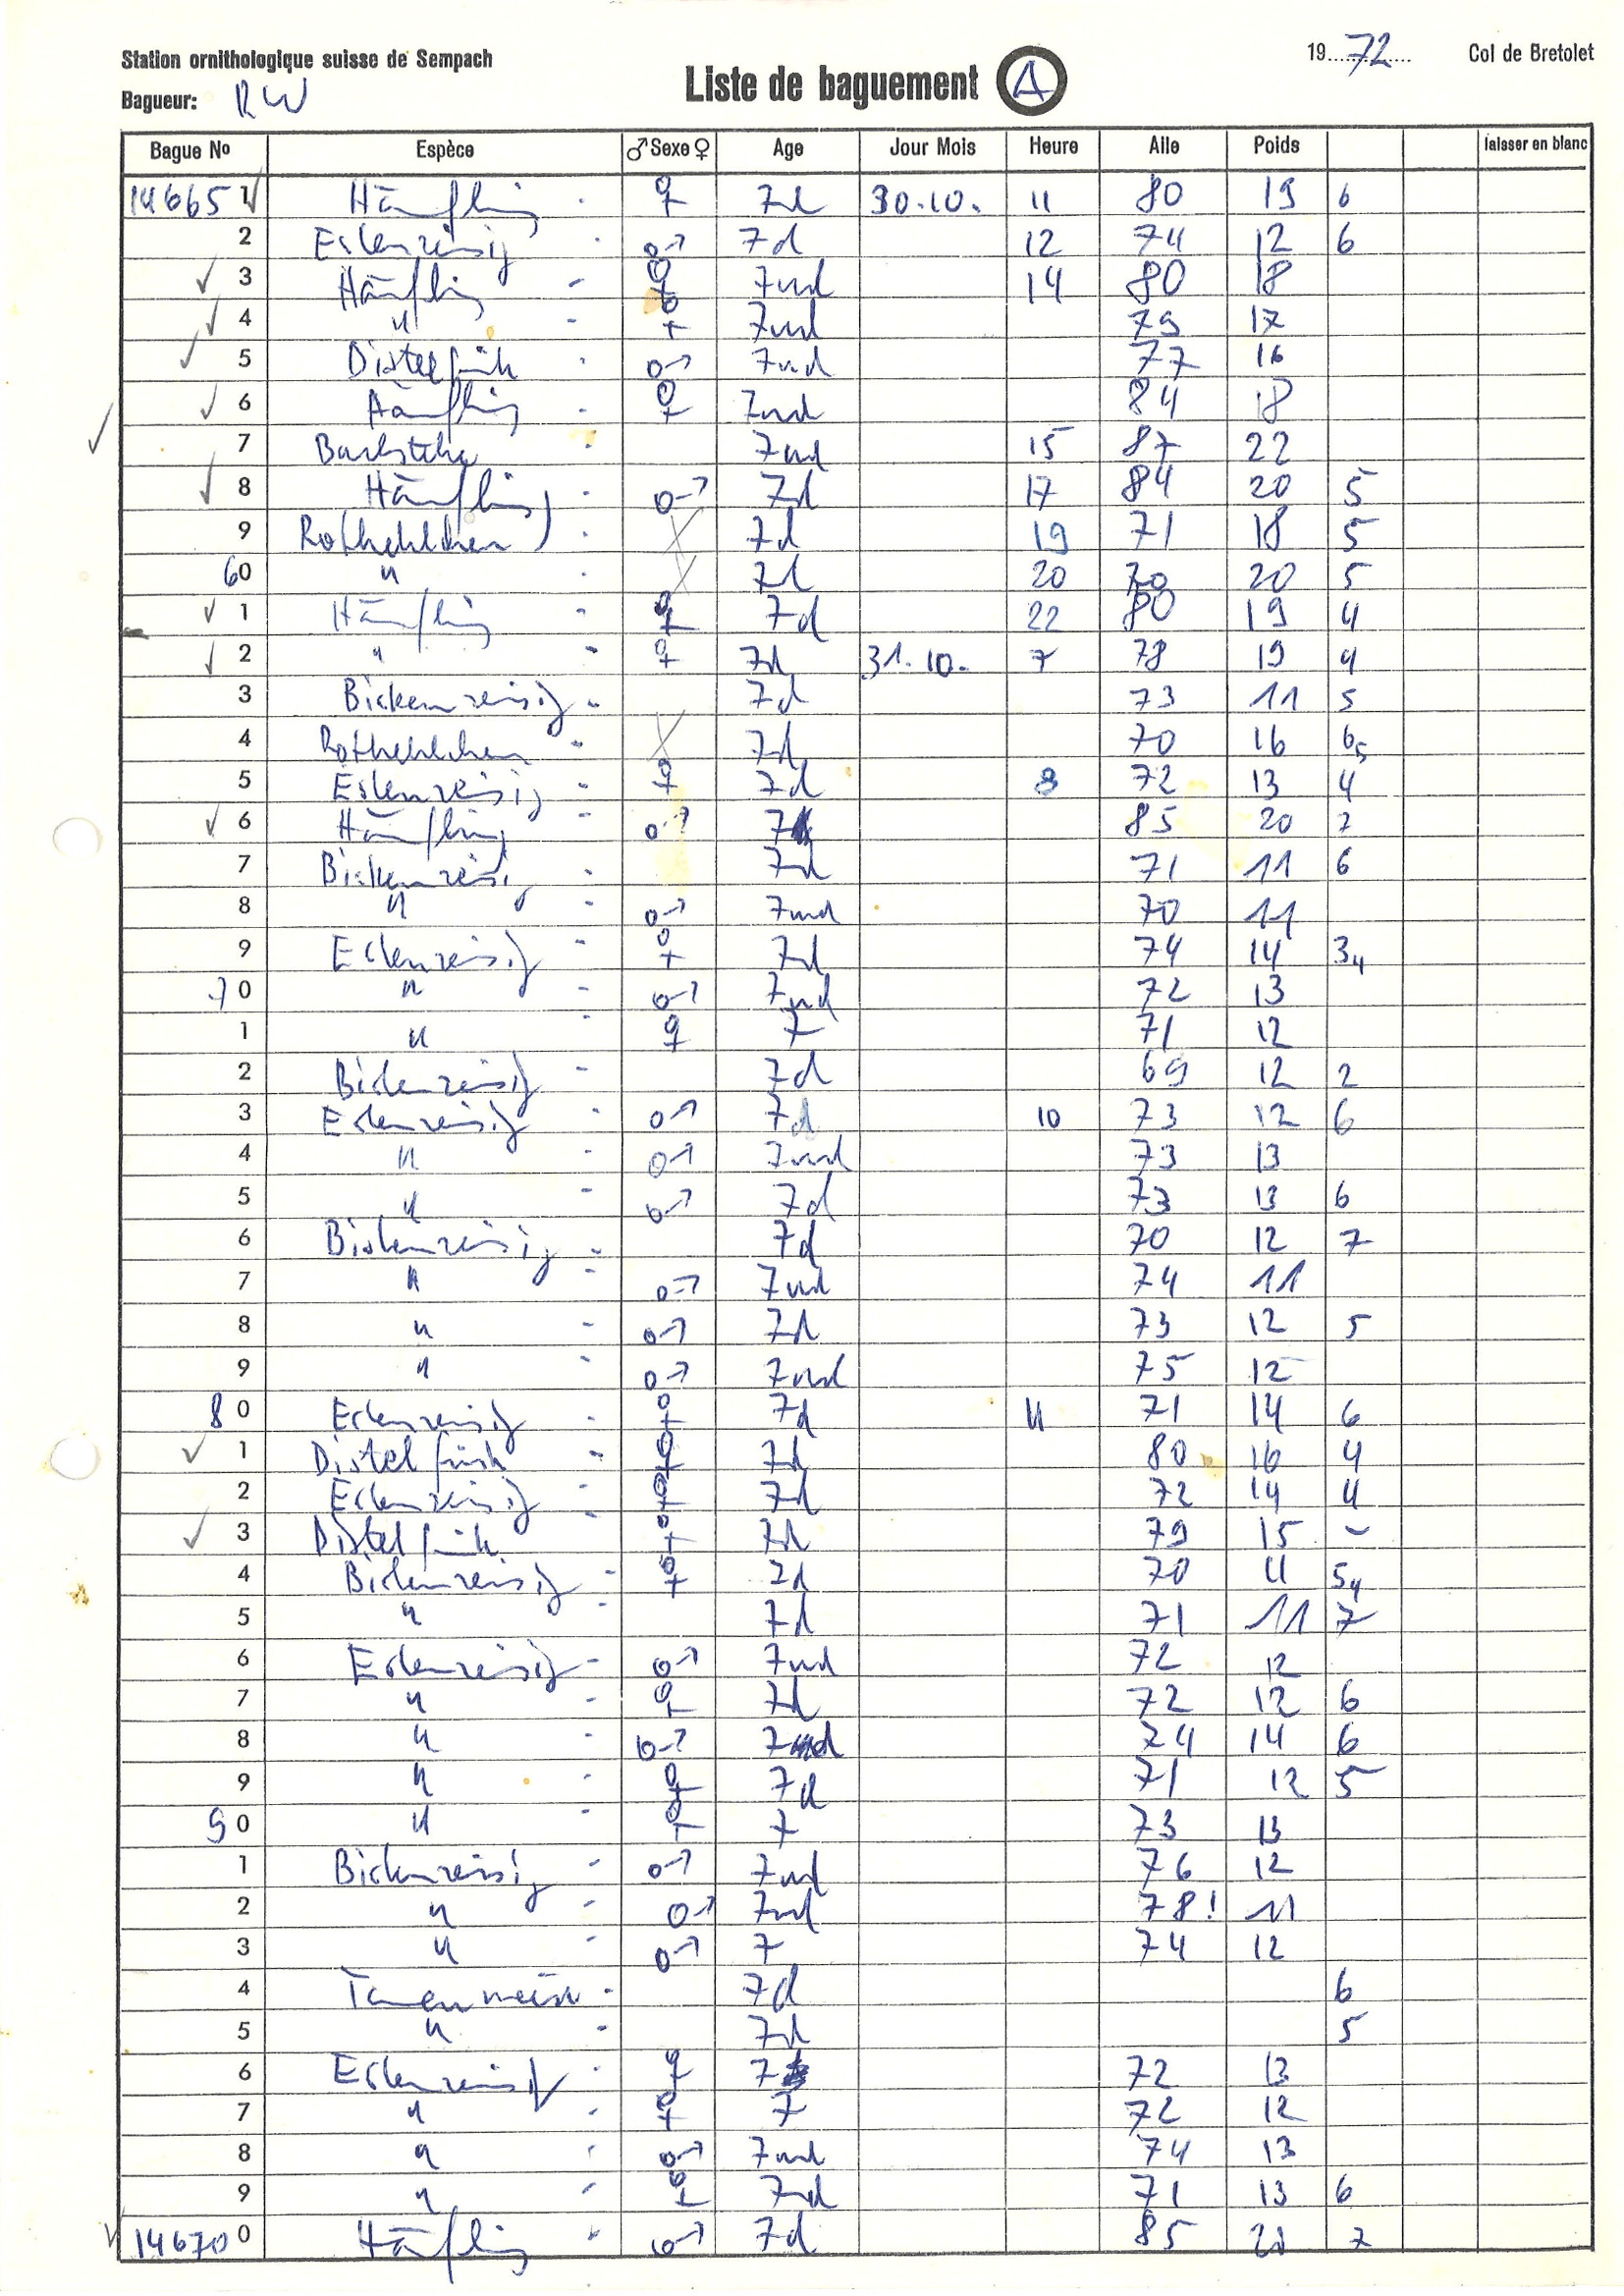 Station ornithologique suisse de Sempach
19 72 Col de Bretolet
Liste de baguement A
Bagueur: RW
Bague No Espèce ♂ Sexe ♀ Age Jour Mois Heure Aile Poids laisser en blanc
146651 Hänfling ♀ 7d 30.10. 11 80 19 6
2 Erlenzeisig ♂ 7d 12 74 12 6
3 Hänfling - ♀ 7nd 14 80 18
4 " - ♀ 7nd 79 17
5 Distelfink ♂ 7nd 77 16
6 Hänfling - ♀ 7nd 84 18
7 Bachstelze - 7nd 15 87 22
8 Hänfling - ♂ 7d 17 84 20 5
9 Rotkehlchen - 7d 19 71 18 5
60 " - 7d 20 70 20 5
1 Hänfling - ♀ 7d 22 80 19 4
2 " - ♀ 7d 31.10. 7 78 19 4
3 Birkenzeisig - 7d 73 11 5
4 Rotkehlchen - 7d 70 16 65
5 Erlenzeisig - ♀ 7d 72 13 4
6 Hänfling - ♂ 7 85 20 7
7 Birkenzeisig - 7d 71 11 6
8 " - ♂ 7nd 70 11
9 Erlenzeisig - ♀ 7d 74 14 34
70 " - ♂ 7nd 72 13
1 " - ♀ 7 71 12
2 Birkenzeisig - 7d 69 12 2
3 Erlenzeisig - ♂ 7d 10 73 12 6
4 " - ♂ 7nd 73 13
5 " - ♂ 7d 73 13 6
6 Birkenzeisig - 7d 70 12 7
7 " - ♂ 7nd 74 11
8 " - ♂ 7d 73 12 5
9 " - ♂ 7nd 75 12
80 Erlenzeisig - ♀ 7d 11 71 14 6
1 Distelfink - ♀ 7d 80 16 4
2 Erlenzeisig - ♀ 7d 72 14 4
3 Distelfink ♀ 7d 79 15 -
4 Birkenzeisig - ♀ 7d 70 11 54
5 " - 7d 71 11 7
6 Erlenzeisig - ♂ 7nd 72 12
7 " - ♀ 7d 72 12 6
8 " - ♂ 7d 74 14 6
9 " - ♀ 7d 71 12 5
90 " - ♀ 7 73 13
1 Birkenzeisig - ♂ 7nd 76 12
2 " - ♂ 7nd 78! 11
3 " - ♂ 7 74 12
4 Tannenmeise - 7d 6
5 " - 7d 5
6 Erlenzeisig - ♀ 7 72 13
7 " - ♀ 7 72 12
8 " - ♂ 7nd 74 13
9 " - ♀ 7d 71 13 6
146700 Hänfling - ♂ 7d 85 7